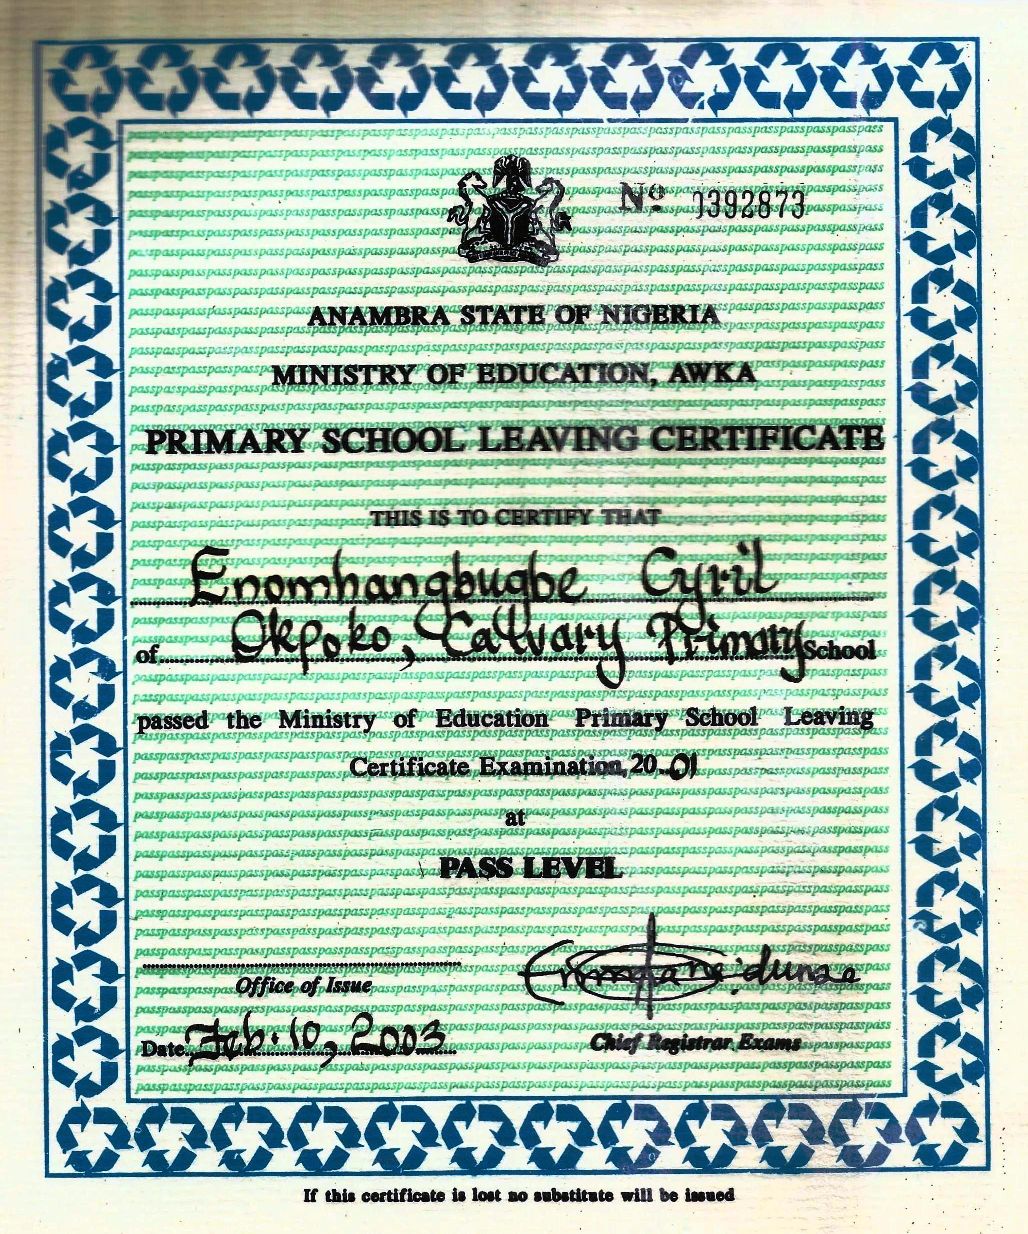 Nº 0392873
ANAMBRA STATE OF NIGERIA
MINISTRY OF EDUCATION, AWKA
PRIMARY SCHOOL LEAVING CERTIFICATE
THIS IS TO CERTIFY THAT
Enomhangbugbe Cyril
of Okpoko, Calvary Primary School
passed the Ministry of Education Primary School Leaving
Certificate Examination, 2001
at
PASS LEVEL
Office of Issue
Date Feb. 10, 2003
Chief Registrar Exams
If this certificate is lost no substitute will be issued